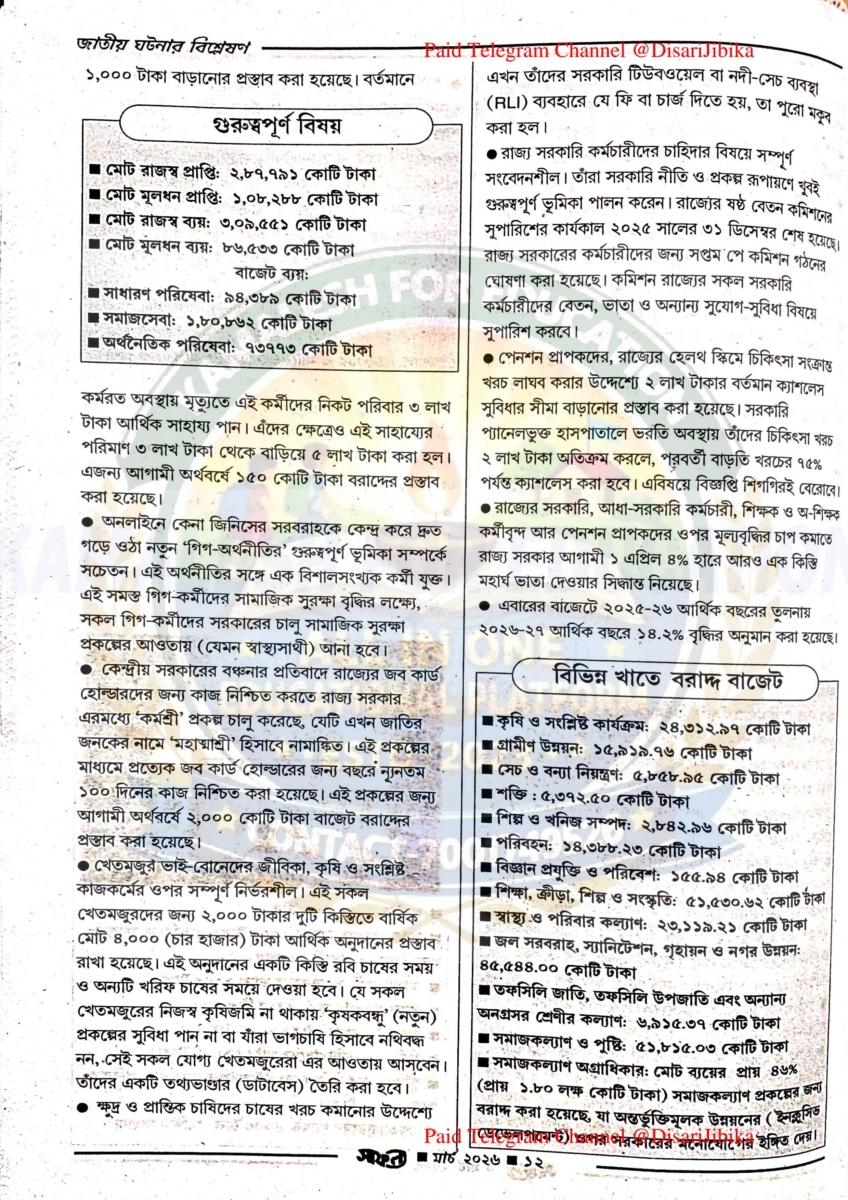 জাতীয় ঘটনার বিশ্লেষণ
Paid Telegram Channel @DisariJibika
১,০০০ টাকা বাড়ানোর প্রস্তাব করা হয়েছে। বর্তমানে
গুরুত্বপূর্ণ বিষয়
■ মোট রাজস্ব প্রাপ্তি: ২,৮৭,৭৯১ কোটি টাকা
■ মোট মূলধন প্রাপ্তি: ১,০৮,২৮৮ কোটি টাকা
■ মোট রাজস্ব ব্যয়: ৩,০৯,৫৫১ কোটি টাকা
■ মোট মূলধন ব্যয়: ৮৬,৫৩৩ কোটি টাকা
বাজেট ব্যয়:
■ সাধারণ পরিষেবা: ৯৪,৩৮৯ কোটি টাকা
■ সমাজসেবা: ১,৮০,৮৬২ কোটি টাকা
■ অর্থনৈতিক পরিষেবা: ৭৩৭৭৩ কোটি টাকা
কর্মরত অবস্থায় মৃত্যুতে এই কর্মীদের নিকট পরিবার ৩ লাখ
টাকা আর্থিক সাহায্য পান। এঁদের ক্ষেত্রেও এই সাহায্যের
পরিমাণ ৩ লাখ টাকা থেকে বাড়িয়ে ৫ লাখ টাকা করা হল।
এজন্য আগামী অর্থবর্ষে ১৫০ কোটি টাকা বরাদ্দের প্রস্তাব
করা হয়েছে।
● অনলাইনে কেনা জিনিসের সরবরাহকে কেন্দ্র করে দ্রুত
গড়ে ওঠা নতুন ‘গিগ-অর্থনীতির’ গুরুত্বপূর্ণ ভূমিকা সম্পর্কে
সচেতন। এই অর্থনীতির সঙ্গে এক বিশালসংখ্যক কর্মী যুক্ত।
এই সমস্ত গিগ-কর্মীদের সামাজিক সুরক্ষা বৃদ্ধির লক্ষ্যে,
সকল গিগ-কর্মীদের সরকারের চালু সামাজিক সুরক্ষা
প্রকল্পের আওতায় (যেমন স্বাস্থ্যসাথী) আনা হবে।
● কেন্দ্রীয় সরকারের বঞ্চনার প্রতিবাদে রাজ্যের জব কার্ড
হোল্ডারদের জন্য কাজ নিশ্চিত করতে রাজ্য সরকার
এরমধ্যে ‘কর্মশ্রী’ প্রকল্প চালু করেছে, যেটি এখন জাতির
জনকের নামে ‘মহাত্মাশ্রী’ হিসাবে নামাঙ্কিত। এই প্রকল্পের
মাধ্যমে প্রত্যেক জব কার্ড হোল্ডারের জন্য বছরে ন্যূনতম
১০০ দিনের কাজ নিশ্চিত করা হয়েছে। এই প্রকল্পের জন্য
আগামী অর্থবর্ষে ২,০০০ কোটি টাকা বাজেট বরাদ্দের
প্রস্তাব করা হয়েছে।
● খেতমজুর ভাই-বোনেদের জীবিকা, কৃষি ও সংশ্লিষ্ট
কাজকর্মের ওপর সম্পূর্ণ নির্ভরশীল। এই সকল
খেতমজুরদের জন্য ২,০০০ টাকার দুটি কিস্তিতে বার্ষিক
মোট ৪,০০০ (চার হাজার) টাকা আর্থিক অনুদানের প্রস্তাব
রাখা হয়েছে। এই অনুদানের একটি কিস্তি রবি চাষের সময়
ও অন্যটি খরিফ চাষের সময়ে দেওয়া হবে। যে সকল
খেতমজুরের নিজস্ব কৃষিজমি না থাকায় ‘কৃষকবন্ধু’ (নতুন)
প্রকল্পের সুবিধা পান না বা যাঁরা ভাগচাষি হিসাবে নথিবদ্ধ
নন, সেই সকল যোগ্য খেতমজুরেরা এর আওতায় আসবেন।
তাঁদের একটি তথ্যভাণ্ডার (ডাটাবেস) তৈরি করা হবে।
● ক্ষুদ্র ও প্রান্তিক চাষিদের চাষের খরচ কমানোর উদ্দেশ্যে
এখন তাঁদের সরকারি টিউবওয়েল বা নদী-সেচ ব্যবস্থা
(RLI) ব্যবহারে যে ফি বা চার্জ দিতে হয়, তা পুরো মকুব
করা হল।
● রাজ্য সরকারি কর্মচারীদের চাহিদার বিষয়ে সম্পূর্ণ
সংবেদনশীল। তাঁরা সরকারি নীতি ও প্রকল্প রূপায়ণে খুবই
গুরুত্বপূর্ণ ভূমিকা পালন করেন। রাজ্যের ষষ্ঠ বেতন কমিশনের
সুপারিশের কার্যকাল ২০২৫ সালের ৩১ ডিসেম্বর শেষ হয়েছে।
রাজ্য সরকারের কর্মচারীদের জন্য সপ্তম পে কমিশন গঠনের
ঘোষণা করা হয়েছে। কমিশন রাজ্যের সকল সরকারি
কর্মচারীদের বেতন, ভাতা ও অন্যান্য সুযোগ-সুবিধা বিষয়ে
সুপারিশ করবে।
● পেনশন প্রাপকদের, রাজ্যের হেলথ স্কিমে চিকিৎসা সংক্রান্ত
খরচ লাঘব করার উদ্দেশ্যে ২ লাখ টাকার বর্তমান ক্যাশলেস
সুবিধার সীমা বাড়ানোর প্রস্তাব করা হয়েছে। সরকারি
প্যানেলভুক্ত হাসপাতালে ভরতি অবস্থায় তাঁদের চিকিৎসা খরচ
২ লাখ টাকা অতিক্রম করলে, পরবর্তী বাড়তি খরচের ৭৫%
পর্যন্ত ক্যাশলেস করা হবে। এবিষয়ে বিজ্ঞপ্তি শিগগিরই বেরোবে।
● রাজ্যের সরকারি, আধা-সরকারি কর্মচারী, শিক্ষক ও অ-শিক্ষক
কর্মীবৃন্দ আর পেনশন প্রাপকদের ওপর মূল্যবৃদ্ধির চাপ কমাতে
রাজ্য সরকার আগামী ১ এপ্রিল ৪% হারে আরও এক কিস্তি
মহার্ঘ ভাতা দেওয়ার সিদ্ধান্ত নিয়েছে।
● এবারের বাজেটে ২০২৫-২৬ আর্থিক বছরের তুলনায়
২০২৬-২৭ আর্থিক বছরে ১৪.২% বৃদ্ধির অনুমান করা হয়েছে।
বিভিন্ন খাতে বরাদ্দ বাজেট
■ কৃষি ও সংশ্লিষ্ট কার্যক্রম: ২৪,৩১২.৯৭ কোটি টাকা
■ গ্রামীণ উন্নয়ন: ১৫,৯১৯.৭৬ কোটি টাকা
■ সেচ ও বন্যা নিয়ন্ত্রণ: ৫,৮৫৮.৯৫ কোটি টাকা
■ শক্তি : ৫,৩৭২.৫০ কোটি টাকা
■ শিল্প ও খনিজ সম্পদ: ২,৮৪২.৯৬ কোটি টাকা
■ পরিবহন: ১৪,৩৮৮.২৩ কোটি টাকা
■ বিজ্ঞান প্রযুক্তি ও পরিবেশ: ১৫৫.৯৪ কোটি টাকা
■ শিক্ষা, ক্রীড়া, শিল্প ও সংস্কৃতি: ৫১,৫৩০.৬২ কোটি টাকা
■ স্বাস্থ্য ও পরিবার কল্যাণ: ২৩,১১৯.২১ কোটি টাকা
■ জল সরবরাহ, স্যানিটেশন, গৃহায়ন ও নগর উন্নয়ন:
৪৫,৫৪৪.০০ কোটি টাকা
■ তফসিলি জাতি, তফসিলি উপজাতি এবং অন্যান্য
অনগ্রসর শ্রেণীর কল্যাণ: ৬,৯১৫.৩৭ কোটি টাকা
■ সমাজকল্যাণ ও পুষ্টি: ৫১,৮১৫.০৩ কোটি টাকা
■ সমাজকল্যাণ অগ্রাধিকার: মোট ব্যয়ের প্রায় ৪৬%
(প্রায় ১.৮০ লক্ষ কোটি টাকা) সমাজকল্যাণ প্রকল্পের জন্য
বরাদ্দ করা হয়েছে, যা অন্তর্ভুক্তিমূলক উন্নয়নের (ইনক্লুসিভ
সরকারের মনোযোগের ইঙ্গিত দেয়।
Paid Telegram Channel @DisariJibika
সাফল্য ■ মার্চ ২০২৬ ■ ১২